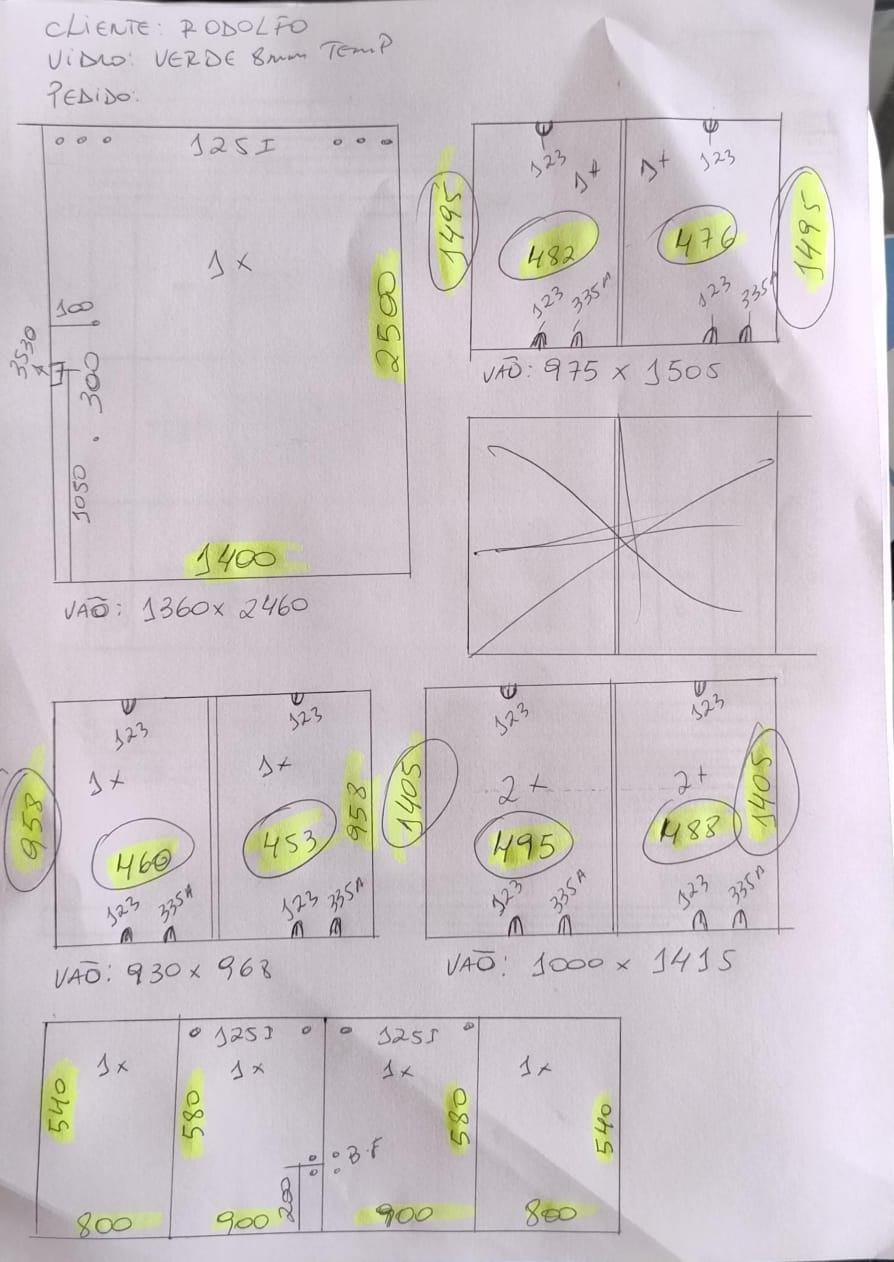 CLIENTE: RODOLFO
VIDRO: VERDE 8mm TEMP
PEDIDO:
125I
1x
100
3530
300
1050
2500
1400
VAÕ: 1360 x 2460
1495
123
1+
1+
123
1495
482
476
123
335A
123
335A
VAÕ: 975 x 1505
958
123
123
1x
1+
958
460
453
123
335A
123
335A
VAÕ: 930 x 968
1405
123
123
2+
2+
1405
495
488
123
335A
123
335A
VAÕ: 1000 x 1415
125I
125I
1x
1x
1x
1x
540
580
580
540
B.F
200
800
900
900
800